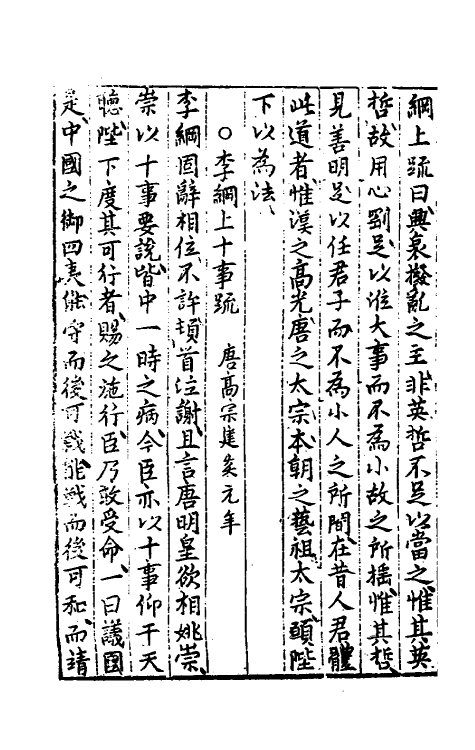 綱上疏曰興衰撥亂之主非英哲不足以當之惟其英
哲故用心剛足以涖大事而不為小故之所搖惟其哲
見善明足以任君子而不為小人之所間在昔人君體
此道者惟漢之高光唐之太宗本朝之藝祖太宗願陛
下以為法
○李綱上十事疏　唐高宗建炎元年
李綱固辭相位不許頓首泣謝且言唐明皇欲相姚崇
崇以十事要說皆中一時之病今臣亦以十事仰干天
聽陛下度其可行者賜之施行臣乃敢受命一曰議國
是中國之御四夷能守而後可戰能戰而後可和而靖